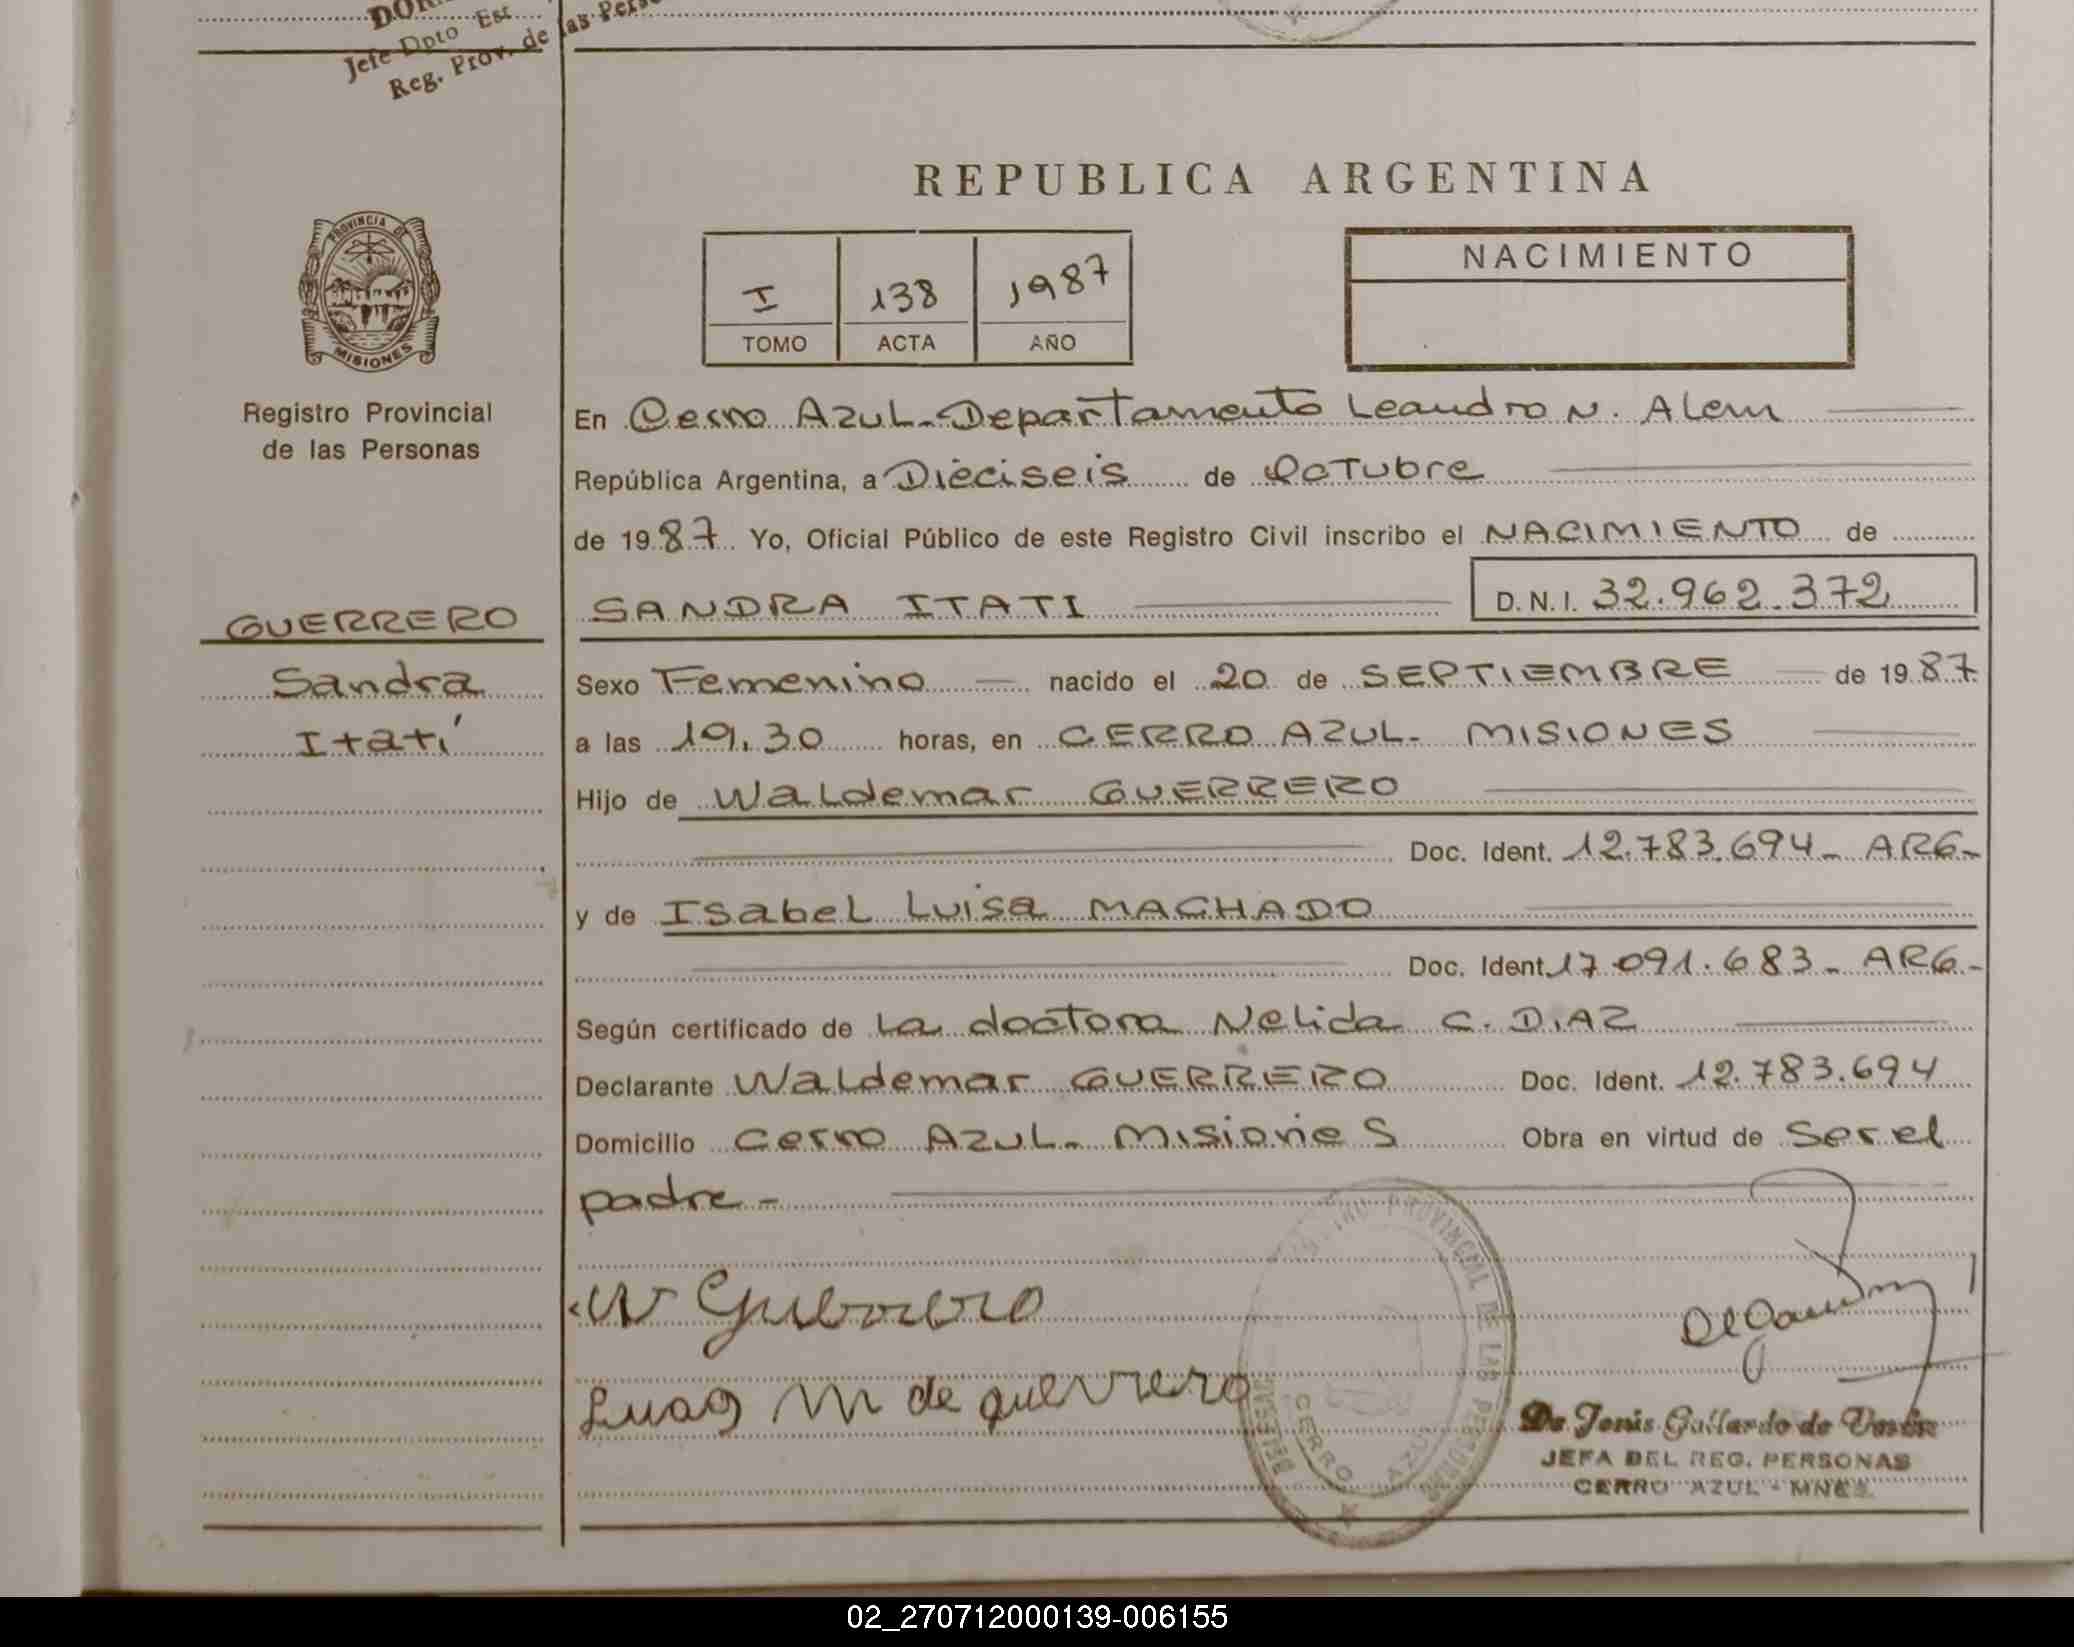 Jefe Dpto Est
Reg. Prov. de las Pers
REPUBLICA ARGENTINA
PROVINCIA DE
MISIONES
Registro Provincial
de las Personas
I 138 1987
TOMO ACTA AÑO
NACIMIENTO
En Cerro Azul-Departamento Leandro N. Alem
República Argentina, a Dieciseis de Octubre
de 1987 Yo, Oficial Público de este Registro Civil inscribo el NACIMIENTO de
GUERRERO
Sandra
Itatí
SANDRA ITATI D.N.I. 32.962.372
Sexo Femenino nacido el 20 de SEPTIEMBRE de 1987
a las 19,30 horas, en CERRO AZUL- MISIONES
Hijo de Waldemar GUERRERO
Doc. Ident. 12.783.694- ARG-
y de Isabel Luisa MACHADO
Doc. Ident. 17.091.683- ARG-
Según certificado de la doctora Nelida C. DIAZ
Declarante Waldemar GUERRERO Doc. Ident. 12.783.694
Domicilio Cerro Azul- Misiones Obra en virtud de Ser el
padre-
W Guerrero
M de guerrero
PROVINCIAL DE LAS PERSONAS
CERRO AZUL
Gallardo de
JEFA DEL REG. PERSONAS
CERRO AZUL - MNES.
02_270712000139-006155